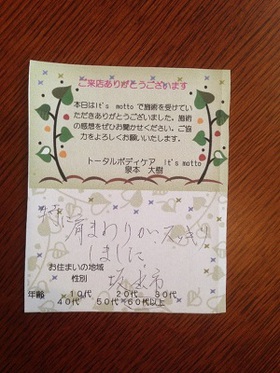 ご来店ありがとうございます
本日はIt's mottoで施術を受けてい
ただきありがとうございました。施術
の感想をぜひお聞かせください。ご協
力をよろしくお願いいたします。
トータルボディケア It's motto
泉本 大樹
特に肩まわりがスッキリ
しました
お住まいの地域
性別
年齢 10代 20代 30代
40代 50代 60代以上